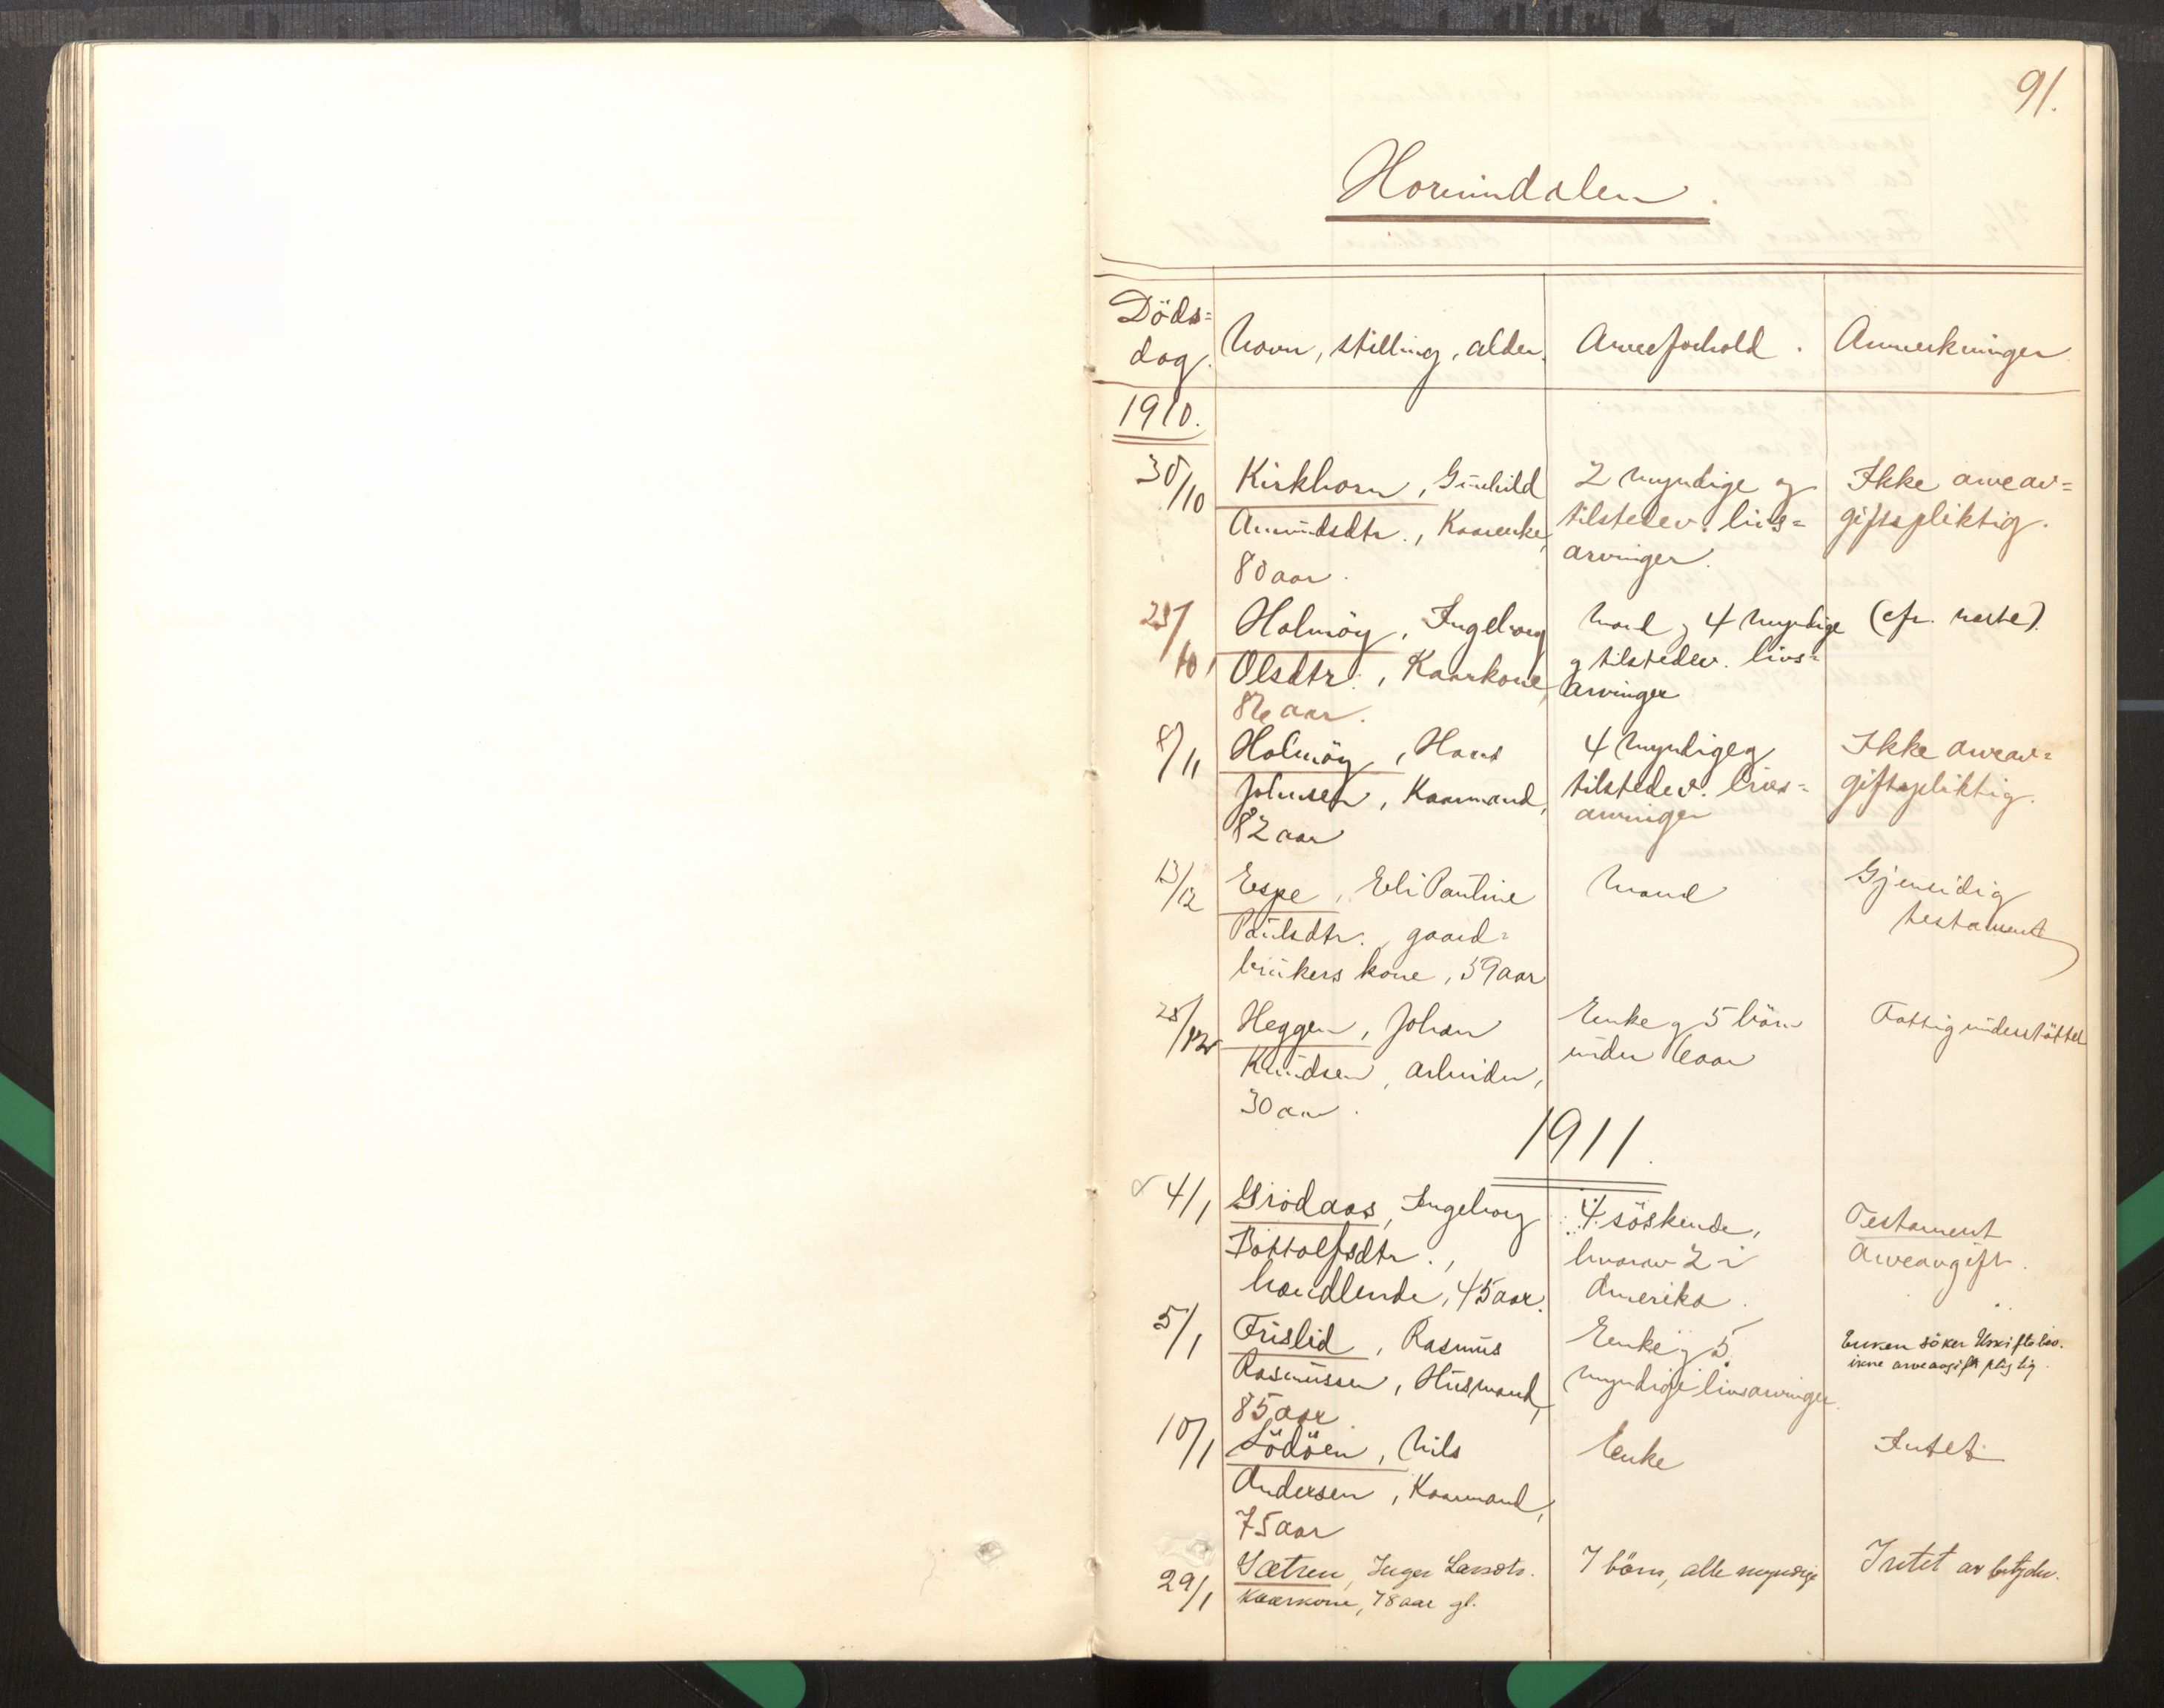 91.
Hornindalen.
Döds=
dag.
Navn, stilling, alder.
Arveforhold.
Anmerkninger.
1910.
30/10
Kirkhorn, Gunhild
Amundsdtr., Kaarenke,
80 aar.
2 myndige og
tilstedev. livs=
arvinger.
Ikke arveav=
giftspliktig.
25/10
Holmöy, Ingeborg
Olsdtr., Kaarkone,
86 aar.
Mand, 4 myndige
og tilstedev. livs=
arvinger
(cfr. næste).
8/11
Holmöy, Hans
Johnsen, Kaarmand,
82 aar
4 myndige og
tilstedev. livs=
arvinger
Ikke arveav=
giftspliktig.
13/12
Espe, Eli Pauline
Paulsdtr. gaard=
brukers kone, 59 aar
Mand
Gjensidig
testament
28/12
Heggen, Johan
Knudsen, arbeider,
30 aar.
Enke og 5 börn
under 6 aar
Fattigunderstöttet
1911.
4/1
Grodaas, Ingeborg
Bottolfsdtr.,
handlende, 45 aar.
4 söskende,
hvorav 2 i
Amerika.
Testament
Arveavgift.
5/1
Frislid, Rasmus
Rasmussen, Husmand,
85 aar
Enke og 5
myndige livsarvinger.
Enken söker Uskiftebev.
ikke arveavgiftpligtig.
10/1
Lödöen, Nils
Andersen, Kaarmand,
75 aar
Enke
Intet
29/1
Sætren, Inger Larsdtr.
Kaarkone, 78 aar gl.
7 börn, alle myndige
Intet av betydn.